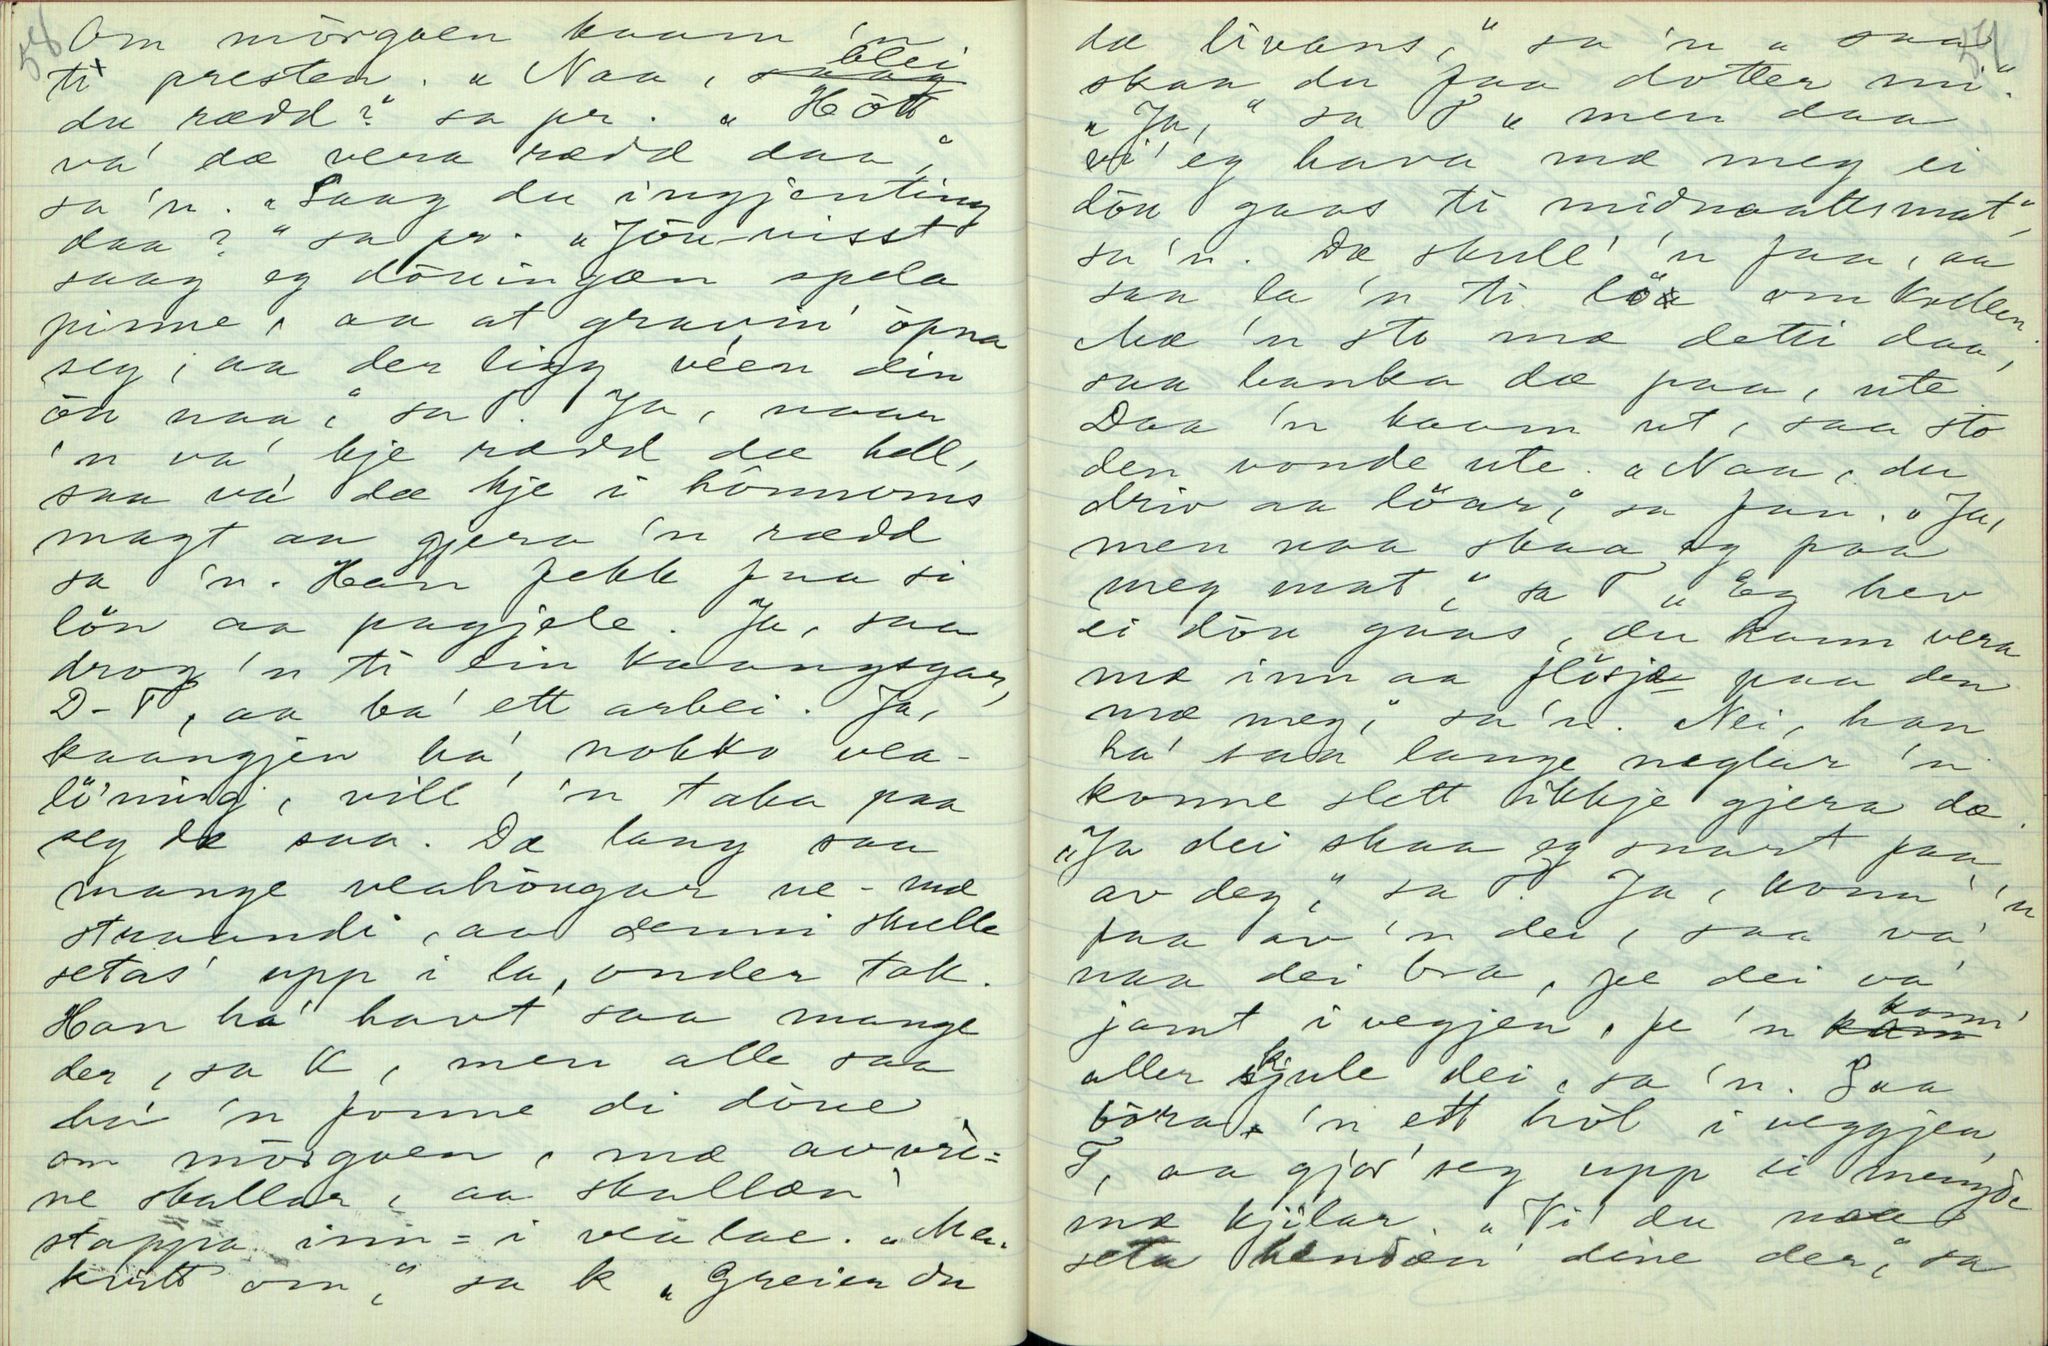 58
Om mörgaen kaam 'n
blei
ti presten. „Naa, saag
du rædd?" sa pr. „Hött
va' dæ vera rædd daa,"
sa 'n. „Saag du ingjenting
daa?" sa pr. „Jöu visst
saag eg döuingæn spela
pinne, aa at gravin' öpna
seg, aa der ligg véen din
öu naa," sa T. Ja, naar
'n va' kje rædd dæ hell,
saa va' dæ kje i hönnoms
magt aa gjera 'n rædd
sa 'n. Han fekk faa si
lön aa pagjele. Ja, saa
drog 'n ti ein kaangsgar,
D-T, aa ba' ett arbei. Ja,
kaangjen ha' nokko vea-
löning, vill' 'n taka paa
seg dæ saa. Dæ laag saa
mange veahöugar ne-mæ
straandi, aa denni skulle
setas' upp i la, onder tak.
Han ha' havt saa mange
der, sa K, men alle saa
ha' 'n fonne di döue
om mörgaen, mæ avvri=
ne skallar, aa skallæn'
stappa inn=i vealae. „Men
kvitt om," sa K „Greier du
dæ livans," sa 'n „saa
skaa du faa dotter mi".
„Ja," sa T „men daa
vi' eg hava mæ meg ei
döu gaas ti midnaattsmat,"
sa 'n. Dæ skull' 'n faa, aa
saa la 'n ti löa om kvellen.
Mæ 'n sto mæ detti daa,
saa banka dæ paa, ute.
Daa 'n kaam ut, saa sto
den vonde ute. „Naa, du
driv aa löar," sa fan. „Ja,
men naa skaa eg faa
meg mat," sa T „Eg hev
ei döu gaas, du kann vera
mæ inn aa flösjæ paa den
mæ meg," sa 'n. Nei, han
ha' saa lange neglar 'n
konne slett ikkje gjera dæ.
„Ja dei skaa eg snart faa
av deg," sa T. Ja, konn' 'n
faa av 'n dei, saa va'
naa dei bra, fe dei va'
jamt i vegjen, fe 'n kann
konn'
aller skjule dei, sa 'n. Saa
böra 'n ett höl i veggjen,
T, aa gjor' seg upp ei mengde
mæ kjilar. „Vi' du naa
seta hendæn' dine der," sa